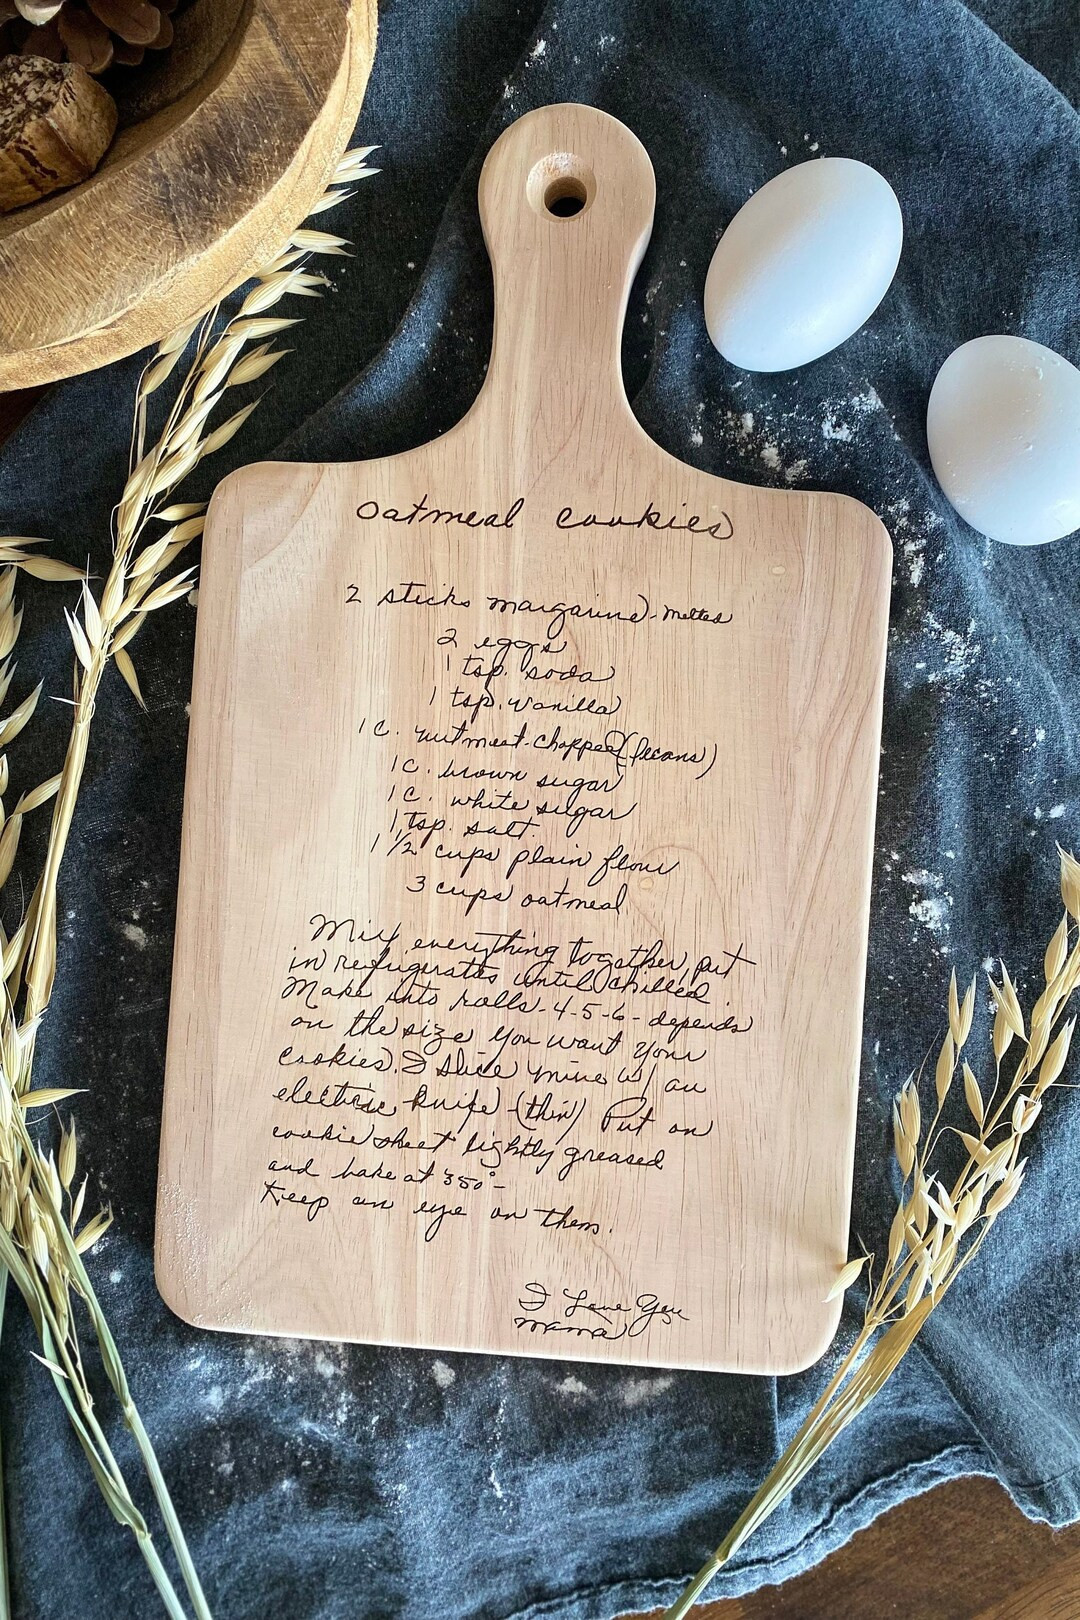 Oatmeal cookies
2 sticks margarine - melted
2 eggs
1 tsp. soda
1 tsp. vanilla
1 c. nutmeat-chopped (pecans)
1 c. brown sugar
1 c. white sugar
1 tsp. salt.
1 1/2 cups plain flour
3 cups oatmeal
Mix everything together, put
in refrigerator until chilled.
Make into rolls - 4-5-6 - depends
on the size you want your
cookies. I slice mine w/ an
electric knife - (thin) Put on
cookie sheet lightly greased
and bake at 350° -
Keep an eye on them.
I Love You
Mama